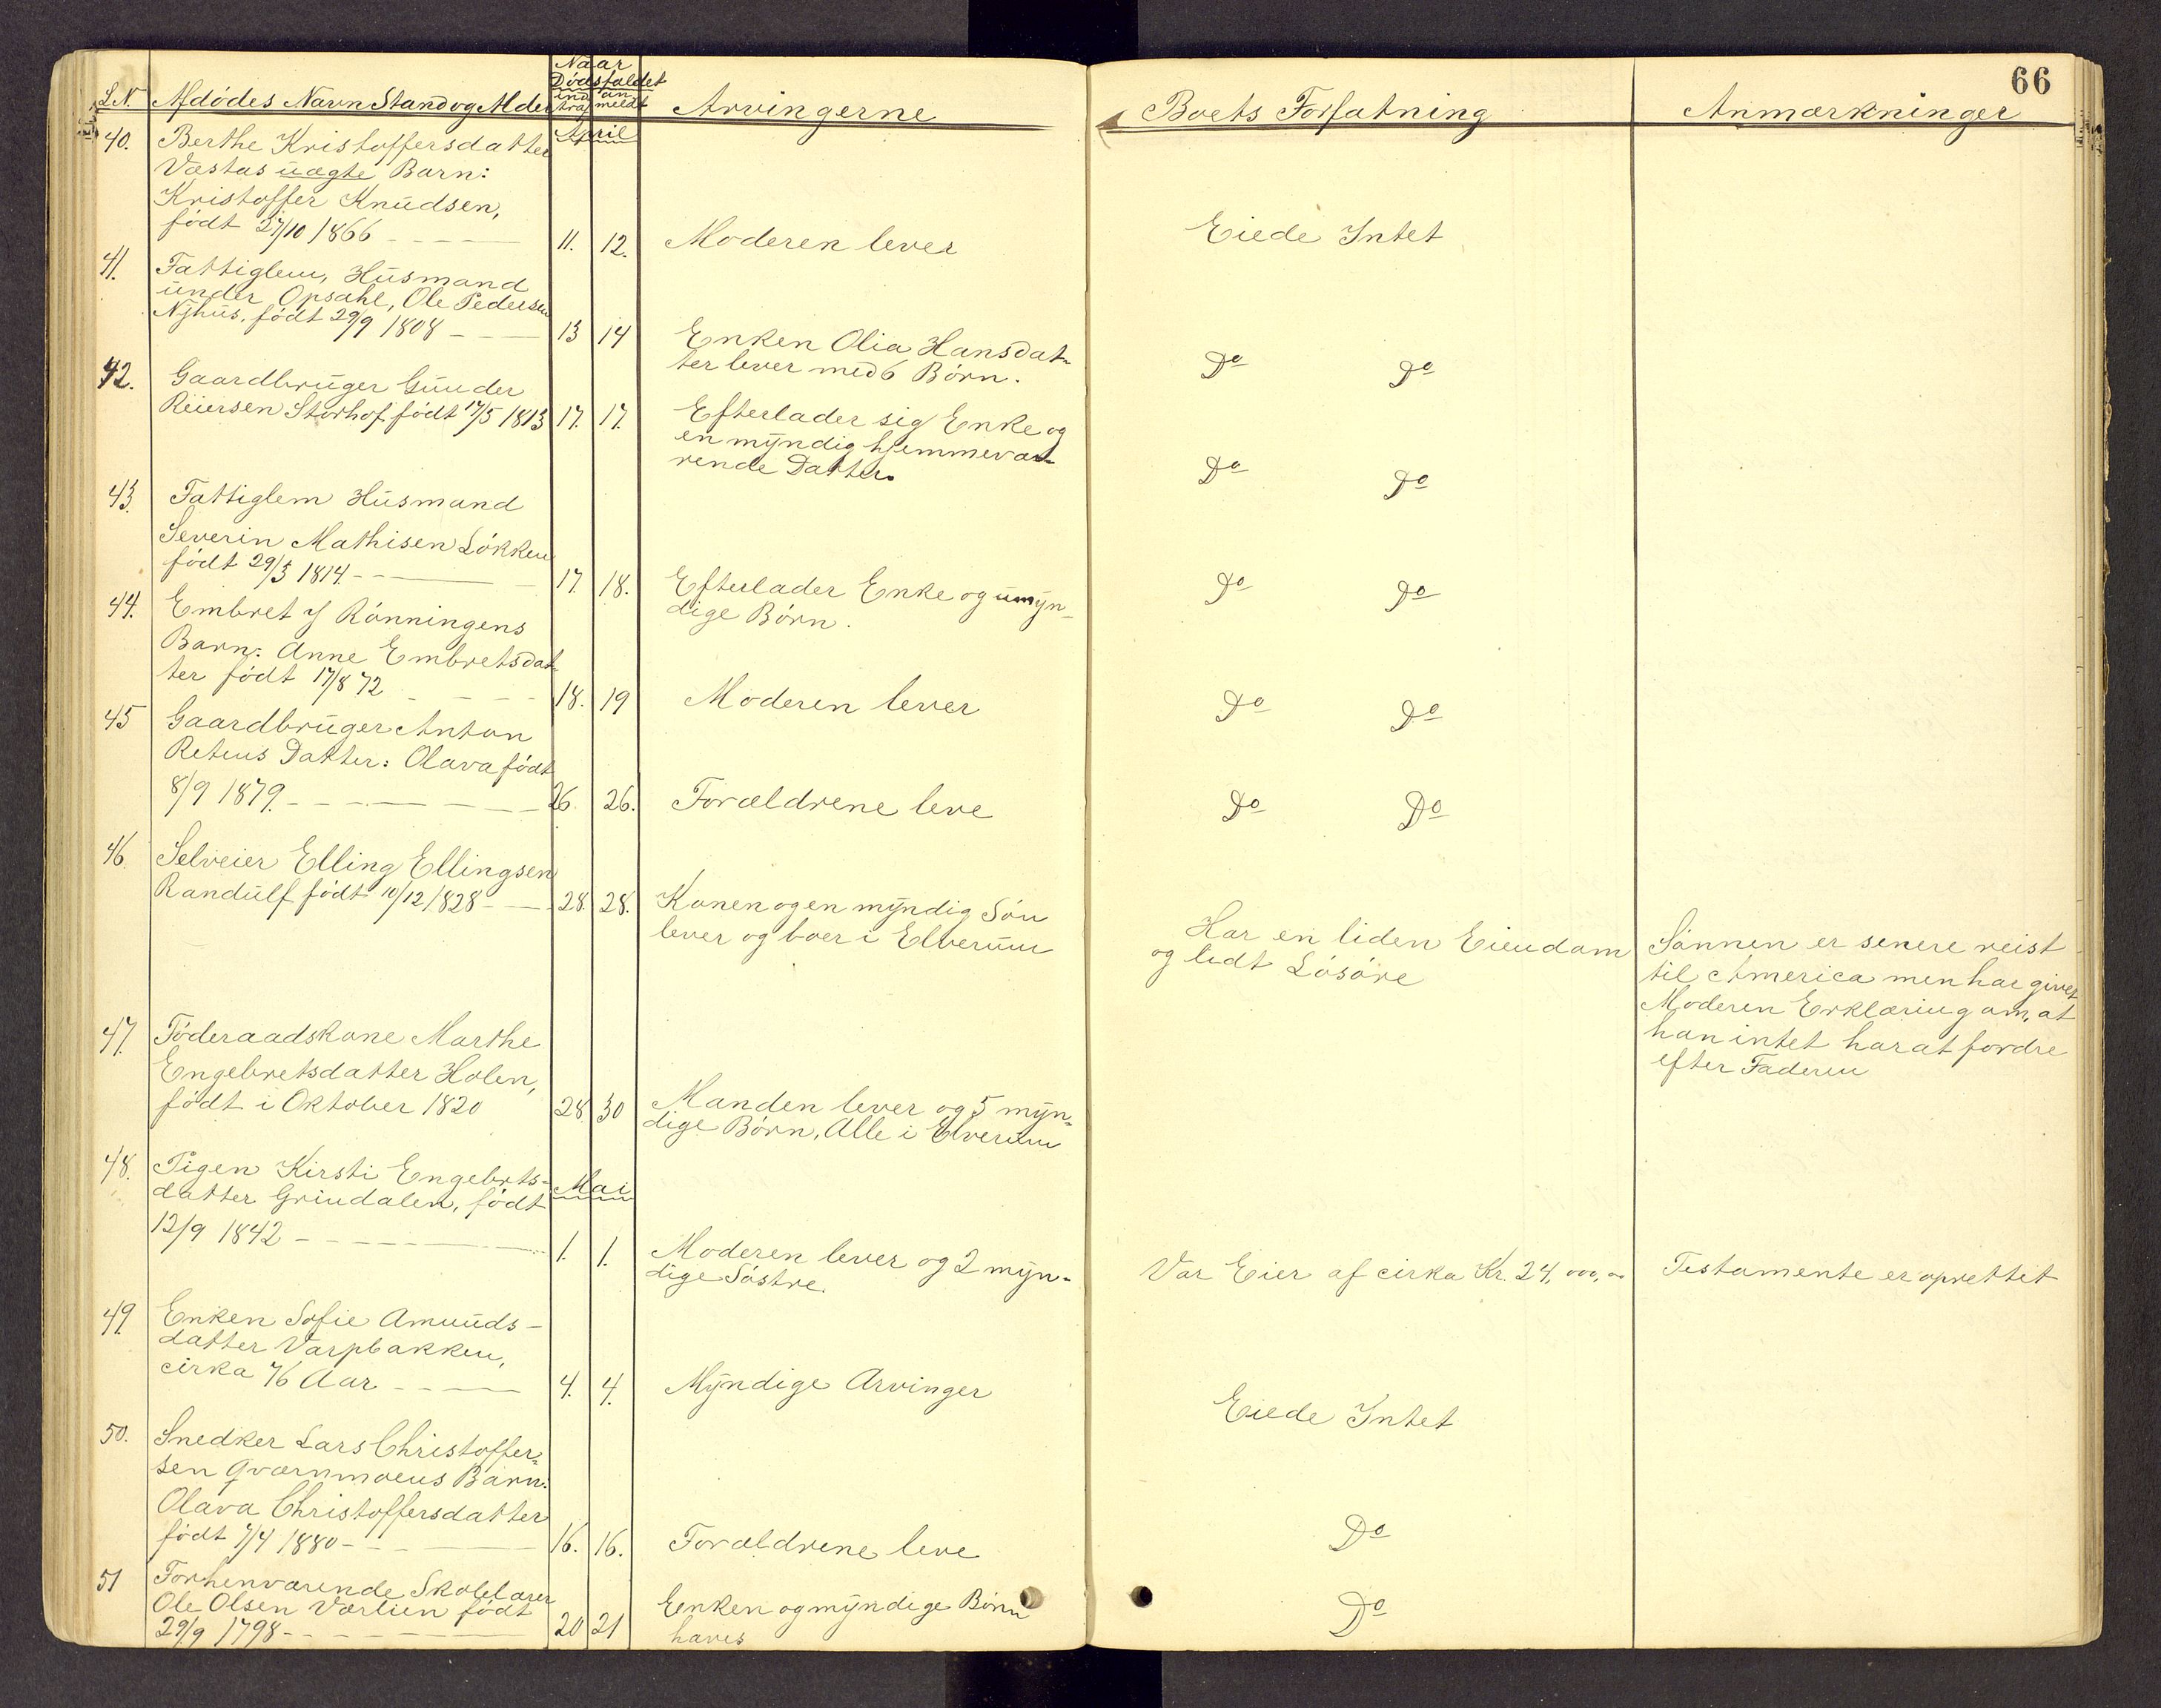 66
Naar
Dödsfaldet
L.N. Afdödes Navn Stand og Alder indtraf anmeldt Arvingerne Boets Forfatning Anmærkninger
April
40. Berthe Kristoffersdatter
Væstas uægte Barn:
Kristoffer Knudsen,
födt 27/10 1866 11. 12. Moderen lever Eiede Intet
41. Fattiglem, Husmand
under Opsahl, Ole Pedersen
Nyhus, födt 29/9 1808 13 14 Enken Olia Hansdat-
ter lever med 6 Börn. Do Do
42. Gaardbruger Gunder
Reiersen Storhof födt 17/5 1813 17. 17. Efterlader sig Enke og
en myndig hjemmevæ-
rende Datter. Do Do
43. Fattiglem Husmand
Severin Mathisen Lökken
födt 29/3 1814 17. 18. Efterlader Enke og umyn-
dige Börn. Do Do
44. Embret Rönningens
Barn: Anne Embretsdat-
ter födt 17/8 72 18. 19 Moderen lever Do Do
45 Gaardbruger Anton
Retens Datter: Olava födt
8/9 1879. 26. 26. Forældrene leve Do Do
46. Selveier Elling Ellingsen
Randulf födt 10/12 1828 28. 28. Konen og en myndig Sön
lever og boer i Elverum
Har en liden Eiendom
og lidt Lösöre
Sönnen er senere reist
til America men har givet
Moderen Erklæring om, at
han intet har at fordre
efter Faderen
47. Föderaadskone Marthe
Engebretsdatter Holen,
födt i Oktober 1820 28 30 Manden lever og 5 myn-
dige Börn, Alle i Elverum
48. Pigen Kirsti Engebrets-
datter Grindalen, födt
Mai
12/9 1842 1. 1. Moderen lever og 2 myn-
dige Söstre. Var Eier af cirka Kr. 24,000,00 Testamente er oprettet
49. Enken Sofie Amunds-
datter Varpbakken,
cirka 76 Aar 4. 4. Myndige Arvinger Eiede Intet
50. Snedker Lars Christoffer-
sen Qværnmoens Barn:
Olava Christoffersdatter
födt 7/4 1880 16. 16. Forældrene leve Do
51 Forhenværende Skolelærer
Ole Olsen Værlien födt
29/9 1798 20 21 Enken og myndige Börn
haves Do